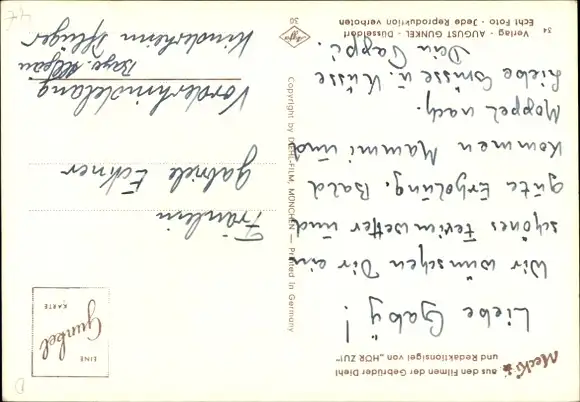 Mecki
aus den Filmen der Gebrüder Diehl
und Redaktionsigel von „HÖR ZU!"
Liebe Gaby!
Wir wünschen Dir ein
schönes Ferienwetter und
gute Erholung. Bald
kommen Mammi und
Moppel nach.
Liebe Grüsse u. Küsse
Dein Pappi.
34
Verlag - AUGUST GUNKEL - Düsseldorf
Echt Foto - Jede Reproduktion verboten
Copyright by DIEHL-FILM, MÜNCHEN — Printed in Germany
EINE
Gunkel
KARTE
Fräulein
Gabriele Eckner
Vorderhindelang
Bayr. Allgäu
Kinderheim Pflüger
Agfa
30
D